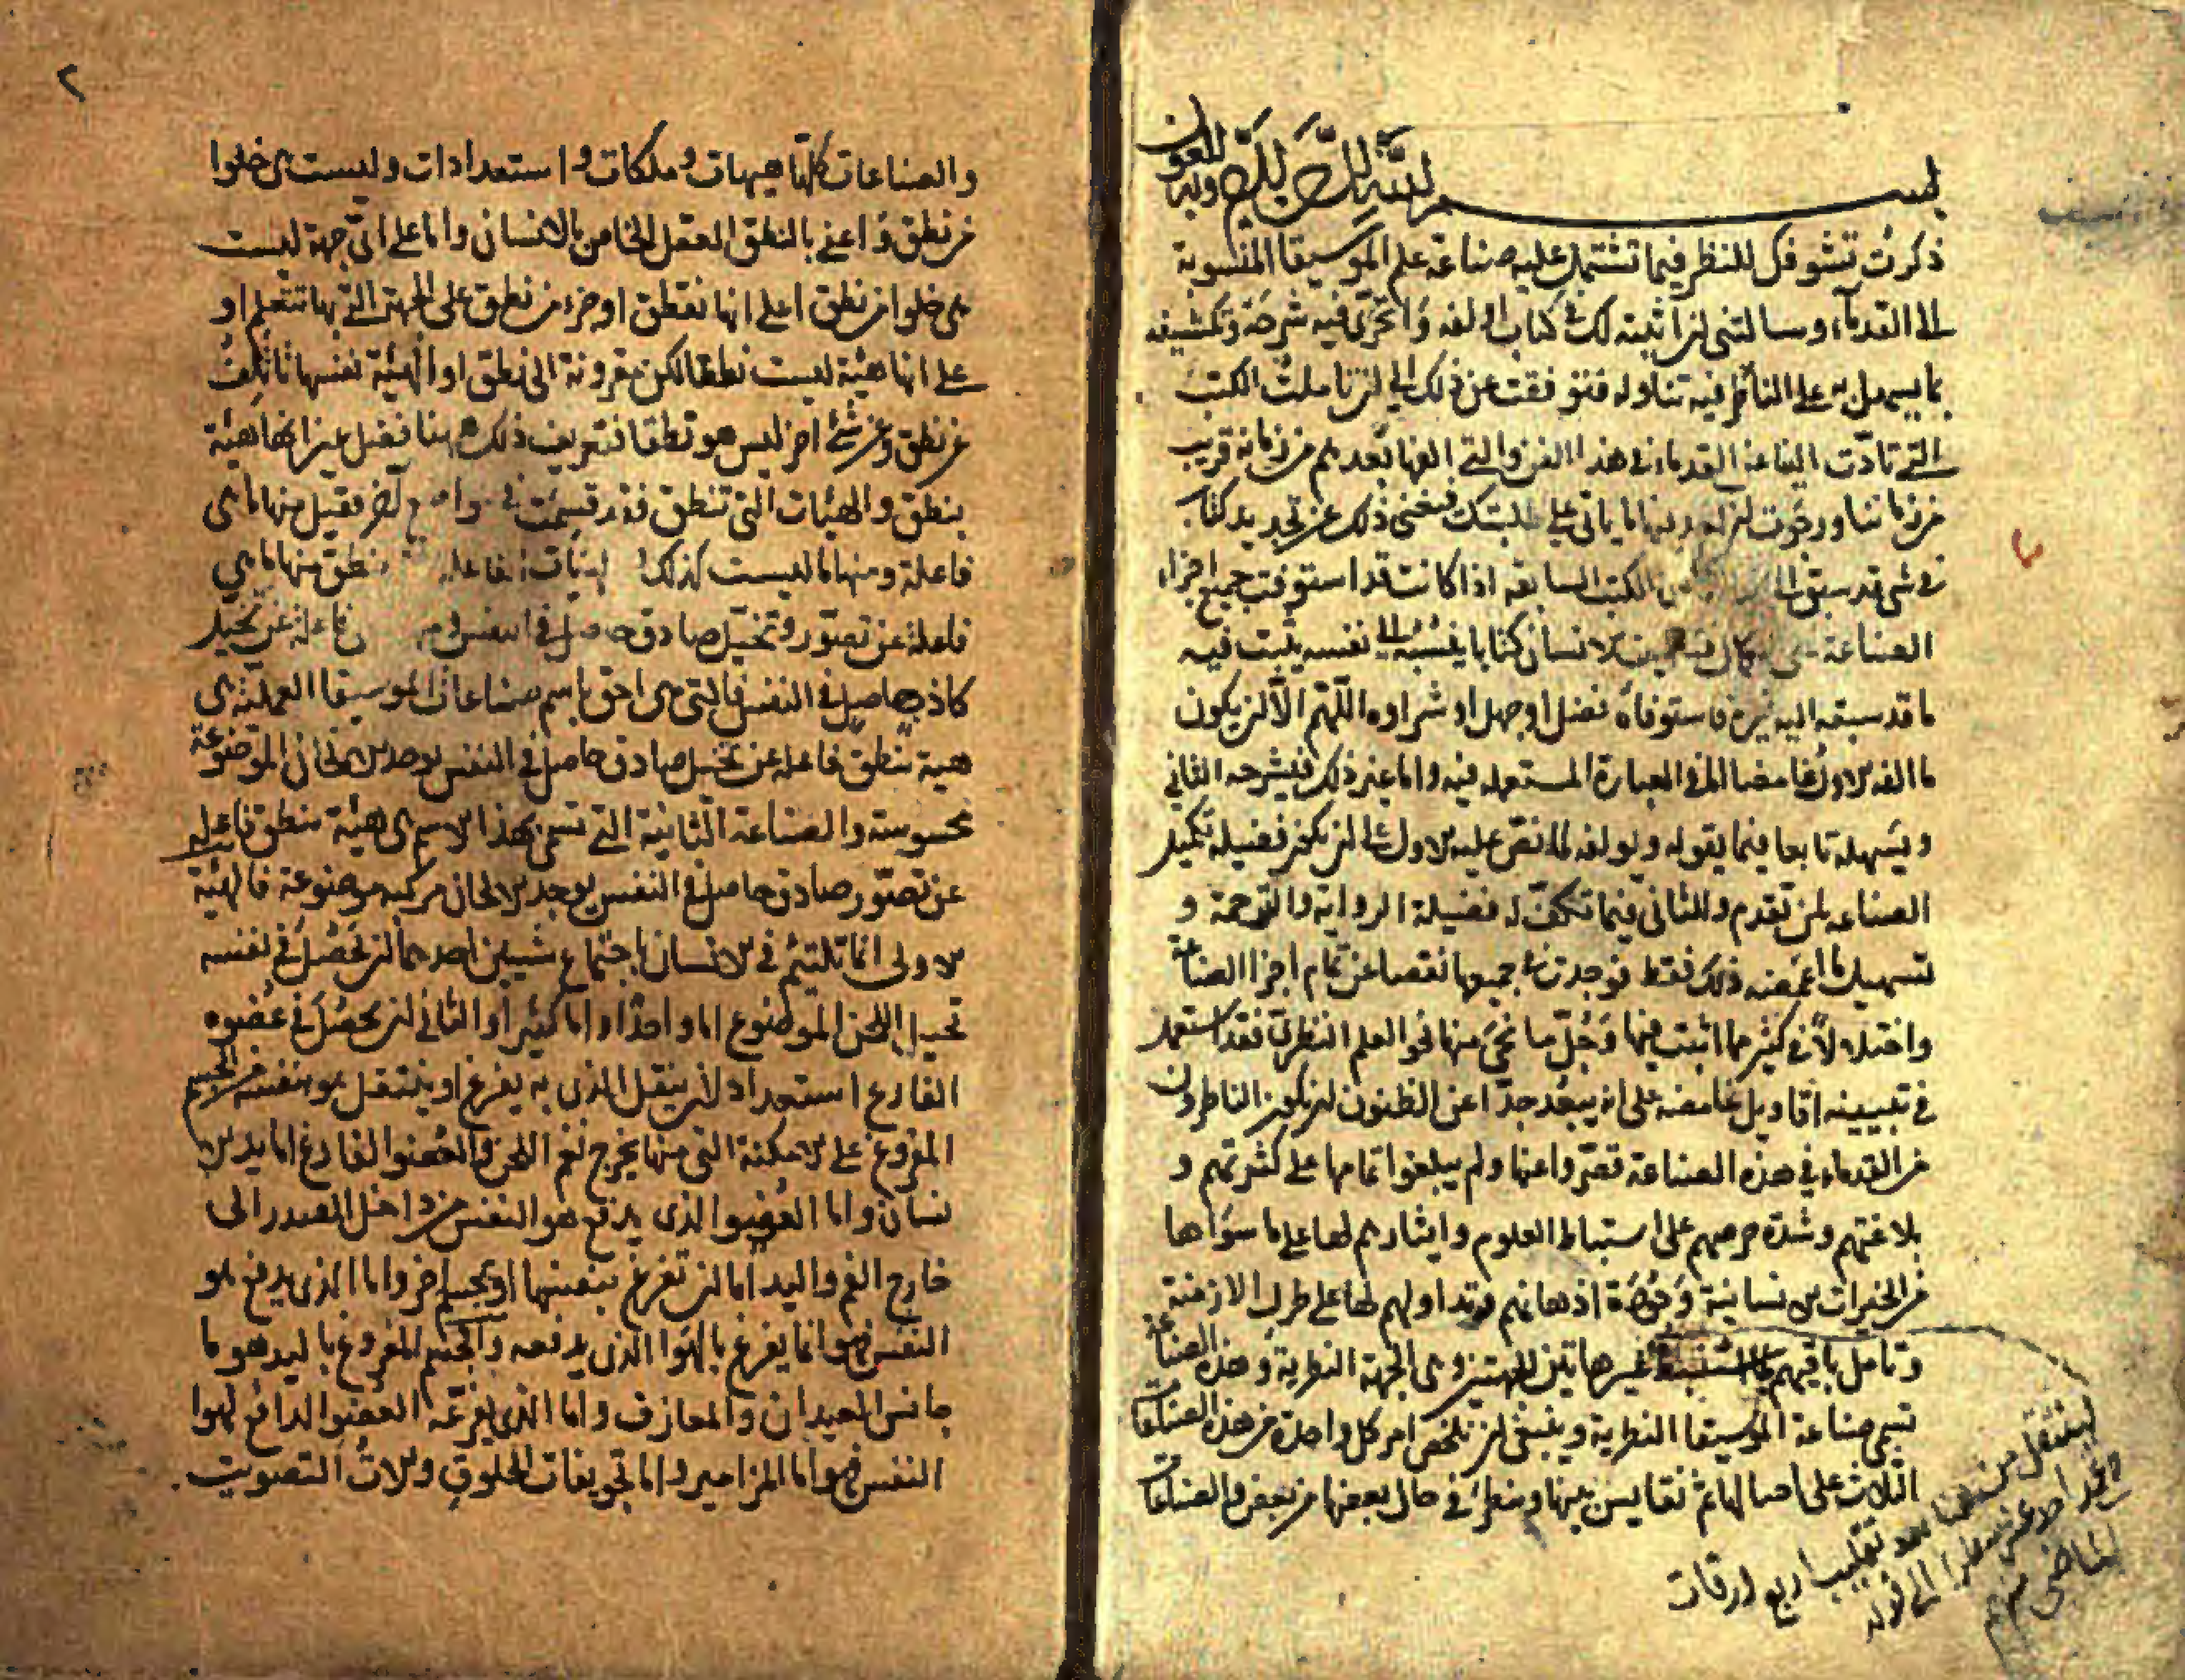 بسم الله الرحمن الرحيم وبه العون
ذكرت تشوفك للنظر فيما تشتمل عليه صناعة علم الموسيقا المنسوبة
الى القدماء وسالتني ان اثبته لك في كتاب اولفه واتحرى فيه شرحه وتكشيفه
بما يسهل به على الناظر فيه تناوله فتوقفت عن ذلك الى ان تاملت الكتب
التي تادت الينا عن القدماء في هذا الفن والتي الفها بعدهم من زمانه قريب
من زماننا ورجوت ان اجد بها ما ياتي على طلبتك فيغني ذلك عن تجديد كتاب
في شي قد سبق الكتب السابقه اذا كانت قد استوفت جميع اجزاء
الصناعة على الكمال الانسان كتابا ينسبه الى نفسه يثبت فيه
ما قد سبقه اليه غيره فاستوفاه فضل او جهل او شراره اللهم الا ان يكون
ما الفه الاول غامضا اما في العبارة المستعمله فيه واما غير ذلك فيشرحه الثاني
ويسهله تابعا فيما يقوله ويولفه لما نص عليه الاول الى ان تكون فضيلة تكميل
الصناعه لمن تقدم وللثاني فيما تكلف له فضيلة الرواية والترجمة و
تسهيل ما اغمضه ذلك فقط فوجدت في جميعها نقصا عن تمام اجزا الصناعة
واختلالا في كثير مما اثبت فيها وجل ما نحي منها نحو العلم النظري فقد استعمل
في تبيينه اقاويل غامضه على انه يبعد جدا عن الظنون ان يكون الناظرون
من القدماء في هذه الصناعة قصروا عنها ولم يبلغوا تمامها على كثرتهم و
بلاغتهم وشدة حرصهم على استنباط العلوم وايثارهم لها على ما سواها
من الخيرات الانسانية وجودة اذهانهم وتداولهم لها على طول الازمنة
وتامل باقيهم غير هاتين الجهتين وهي الجهة النظرية وهذه الصناعة
تسمى صناعة الموسيقا النظرية وينبغي ان نلخص امر كل واحدة من هذه الصناعات
الثلاث على حيالها ثم نقايس بينها وننظر في حال بعضها من بعض والصناعات
لينتقل من هنا بعد تقليب اربع ورقات
٢
والصناعات كلها هيهات وملكات واستعدادات وليست هي خلوا
من نطق واعني بالنطق العقل الخاص بالانسان واما على اي جهة ليست
هي خلوا من نطق اعلى انها نطق او جزء من نطق على الجهة التي بها تتعلم او
على انها هيئة ليست نطقا لكن مقرونة الى نطق او الهيئة نفسها تاتلف
عن نطق وعن شئ اخر ليس هو نطقا فتعريف ذلك ههنا فضل غير انها هيئة
بنطق والهيئات التي تنطق فقد قسمت في مواضع اخر فقيل منها ما هي
فاعلة ومنها ما ليست كذلك نطق منها ما هي
فاعلة عن تصور وتخيل صادق حاصل في النفس فاعلة عن تخيل
كاذب حاصل في النفس فالتي هي احق باسم صناعات الموسيقا العملية هي
هية تنطق فاعله عن تخيل صادق حاصل في النفس يوجد الالحان الموضوعة
محسوسة والصناعة الثانية التي تسمى بهذا الاسم هي هيئة تنطق فاعلة
عن تصور صادق حاصل في النفس يوجد الالحان مركبه موضوعة فالهيئة
الاولى انما تلتئم في الانسان باجتماع شيئين احدهما ان تحصل في نفسه
تخيل اللحن الموضوع اما واحدا واما كثيرا والثاني ان يحصل في عضوه
القارع استعداد لان ينقل الذي به يقرع او ينتقل هو بنفسه من الجسم
المقروع على الامكنة التي منها يخرج نغم اللحن والعضو القارع اما يد الا
نسان واما العضو الذي يدفع هو النفس من داخل الصدر الى
خارج الفم واليد اما ان تقرع بنفسها او بجسم اخر واما الذي يدفع هو
النفس فهو انما يقرع بالهوا الذي يدفعه والجسم المقروع باليد هو ما
جانس العيدان والمعازف واما الذي يقرعه العضو الدافع لهوا
النفس فهو اما المزامير واما تجويفات الحلوق والات التصويت